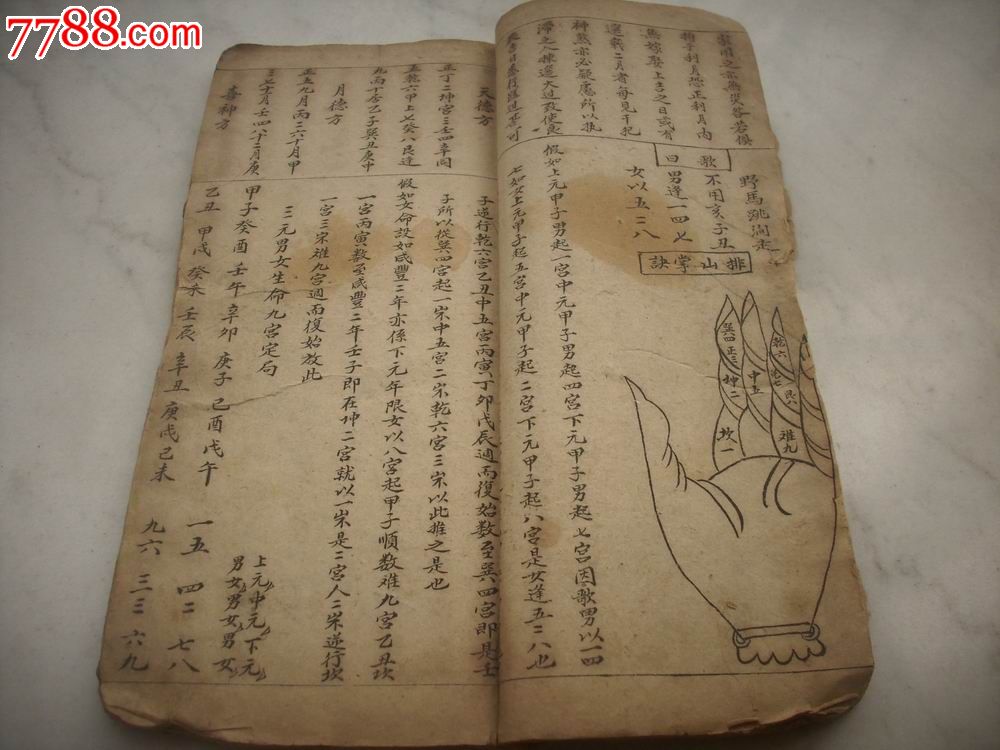 7788.com
中国收藏热线
歌曰
男逢一四七
女以五二八
不用亥子丑
野馬跳澗走
排山掌訣
巽四
正三
坤二
坎一
中五
乾六
艮八
难九
假如上元甲子男起一宫中元甲子男起四宫下元甲子男起七宫因歌男以一四
七如女上元甲子起五宫中元甲子起二宫下元甲子起八宫是女逢五二八也
無嫁娶上吉之日或有
選載二月者每見干犯
神煞亦必嚴應所以執
滯之人揀選大过致使良
天德方
正丁二坤宫三壬四辛同
五乾六甲上七癸八艮逢
九丙十居乙子巽丑庚中
月德方
正五九月丙二六十月甲
三七十一月壬四八十二月庚
喜神方
子逆行乾六宫乙丑中五宫丙寅丁卯戊辰週而復始数至巽四宫即是壬
子所以從巽四宫起一岁中五宫二岁乾六宫三岁以此推之是也
假如女命設如咸豐二年亦係下元年限女以八宫起甲子順數难九宫乙丑坎
一宫丙寅数至咸豐二年壬子即在坤二宫就以一岁是二宫人二岁逆行坎
一宫三岁难九宫週而復始放此
三元男女生命九宫定局
甲子癸酉壬午辛卯庚子己酉戊午
乙丑甲戌癸未壬辰辛丑庚戌己未
上元中元下元
男女男女男女
一五四二七八
九六三三六九